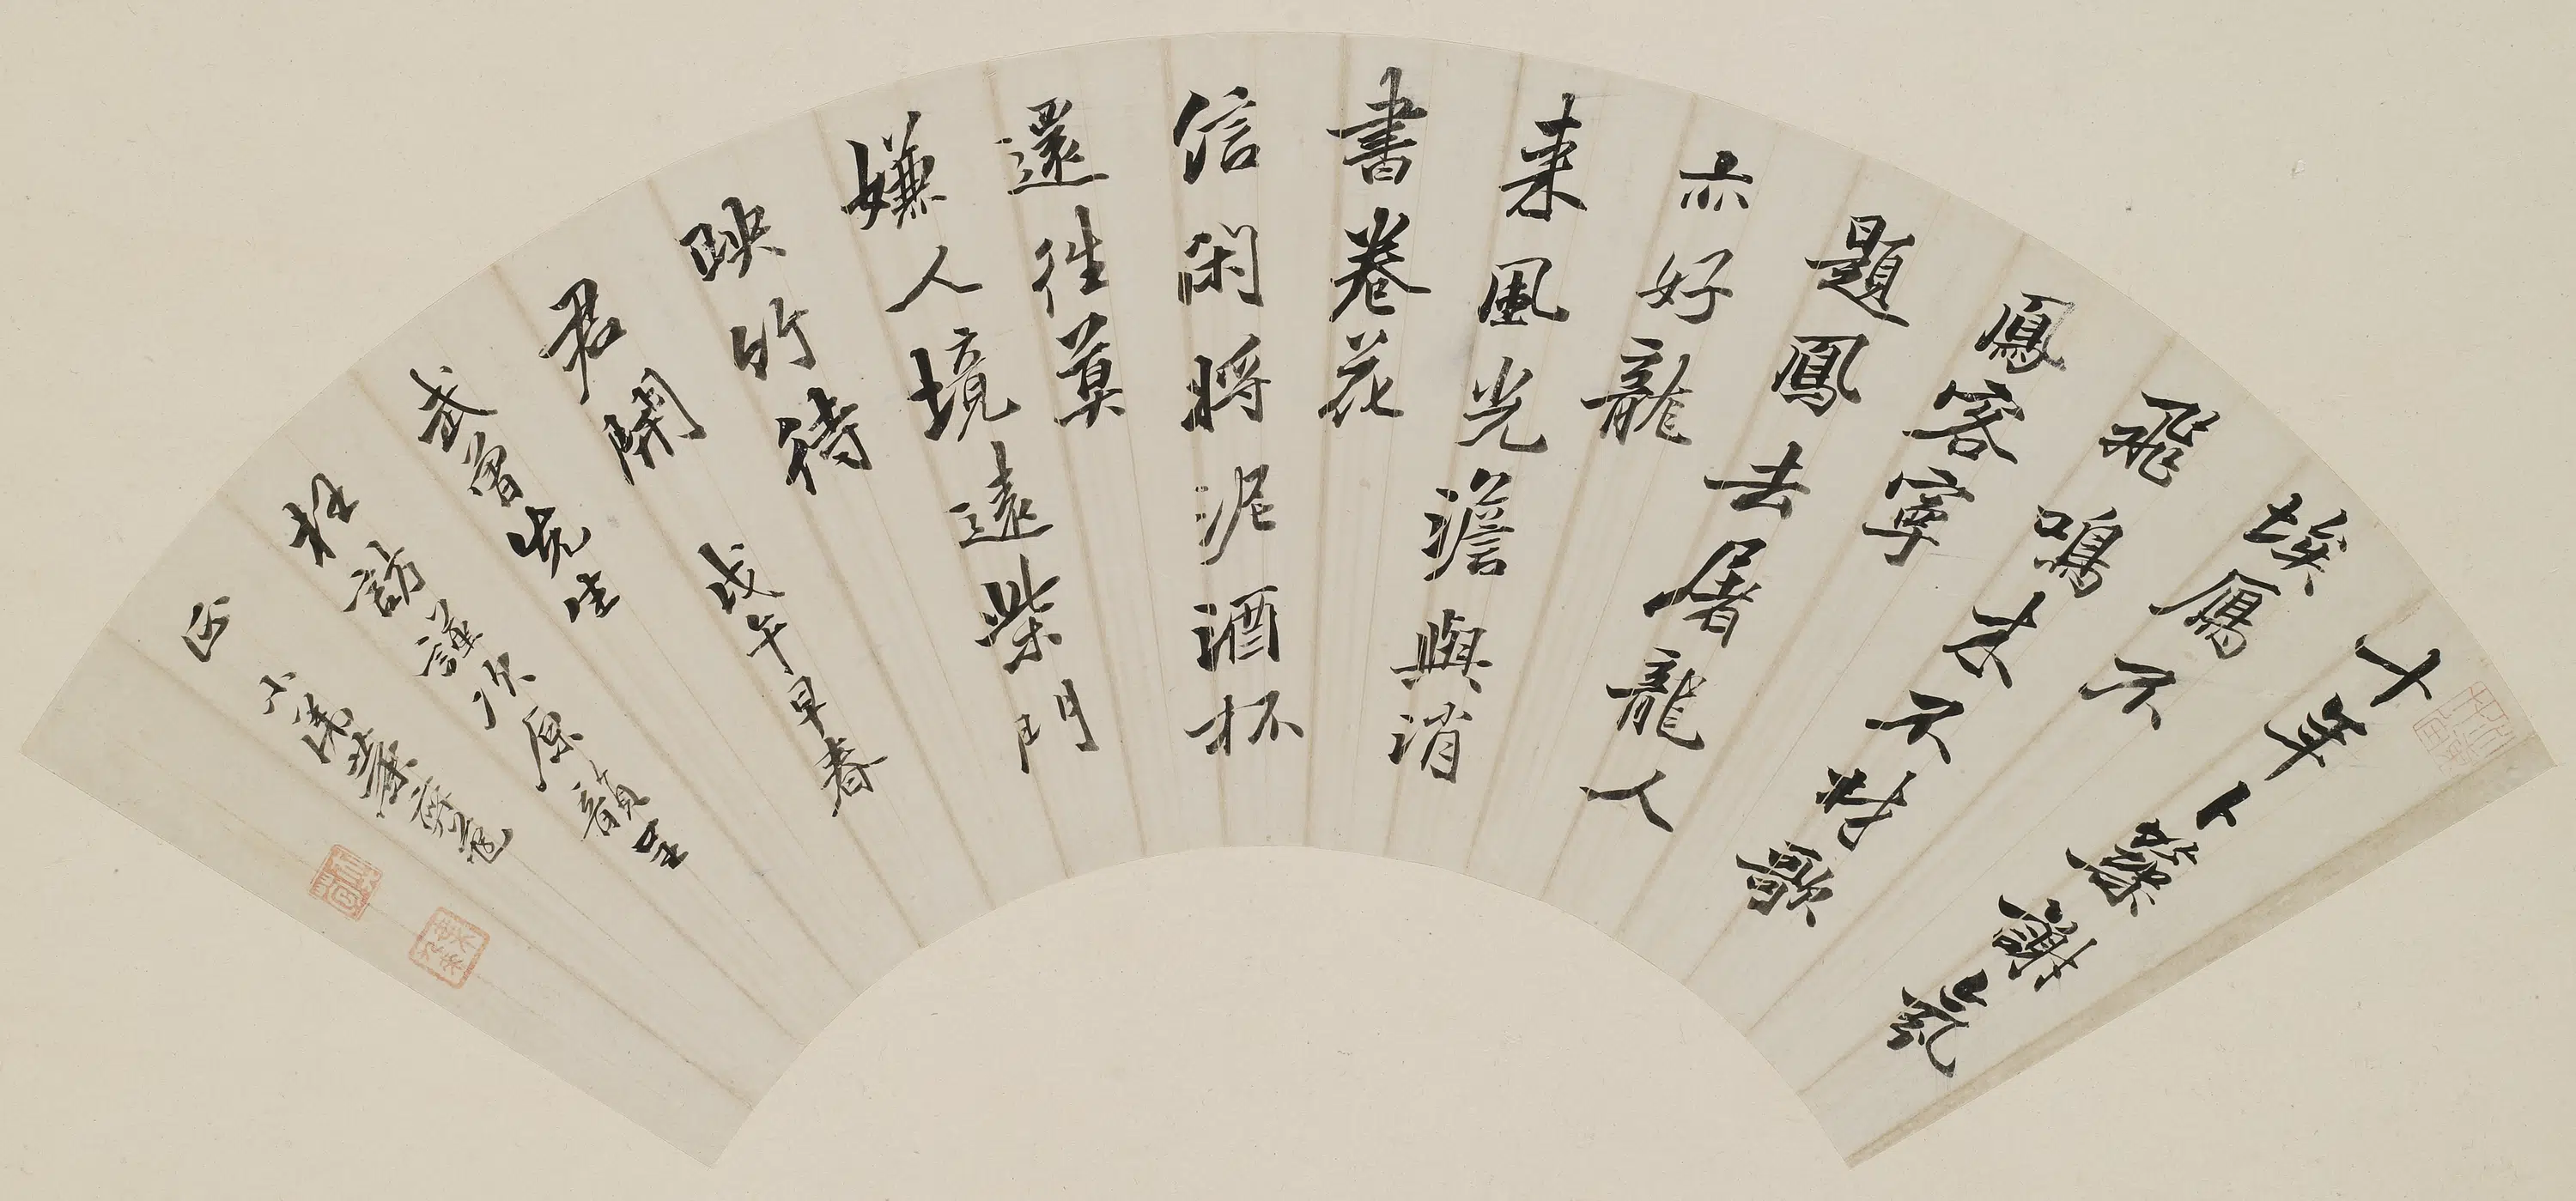 十年卜築謝氛
埃鴈不
飛鳴去不材歌
鳳客寧
題鳳去屠龍人
亦好龍
來風光澹與消
書卷花
信閑將泥酒杯
還往莫
嫌人境遠柴門
映竹待
君開 戊午早春
武曾先生
枉訪謹次原韻呈
正 小弟葉奕苞